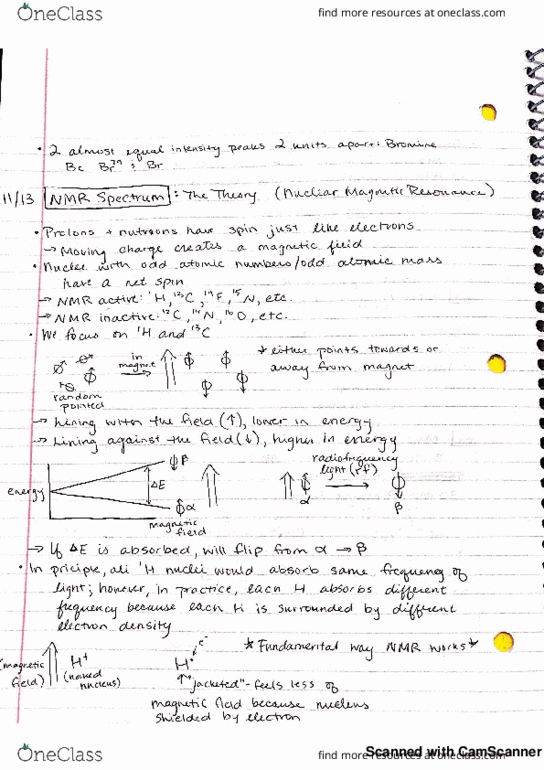 OneClass
find more resources at oneclass.com
• 2 almost equal intensity peaks 2 units apart: Bromine
Bc Br⁷⁹ ; Br
11/13 NMR Spectrum: The Theory (Nuclear Magnetic Resonance)
• Protons + nutrons have spin just like electrons
→ Moving charge creates a magnetic field
• Nuclei with odd atomic numbers/odd atomic mass
have a net spin
→ NMR active: ¹H, ¹³C, ¹⁹F, ¹⁵N, etc.
→ NMR inactive: ¹²C, ¹⁴N, ¹⁶O, etc.
• We focus on ¹H and ¹³C
in
magnet
* either points towards or
away from magnet
random
pointed
→ Lining with the field (↑), lower in energy
→ Lining against the field (↓), higher in energy
radiofrequency
light (rf)
β
energy
ΔE
α
α
β
magnetic
field
→ If ΔE is absorbed, will flip from α → β
• In priciple, all ¹H nuclei would absorb same frequency of
light; however, in practice, each H absorbs different
frequency because each H is surrounded by different
electron density
* Fundamental way NMR works *
(magnetic
field)
H⁺
(naked
nucleus)
e⁻
H•
"jacketed" - feels less of
magnetic field because nucleus
shielded by electron
OneClass
find more resources at oneclass.com
Scanned with CamScanner